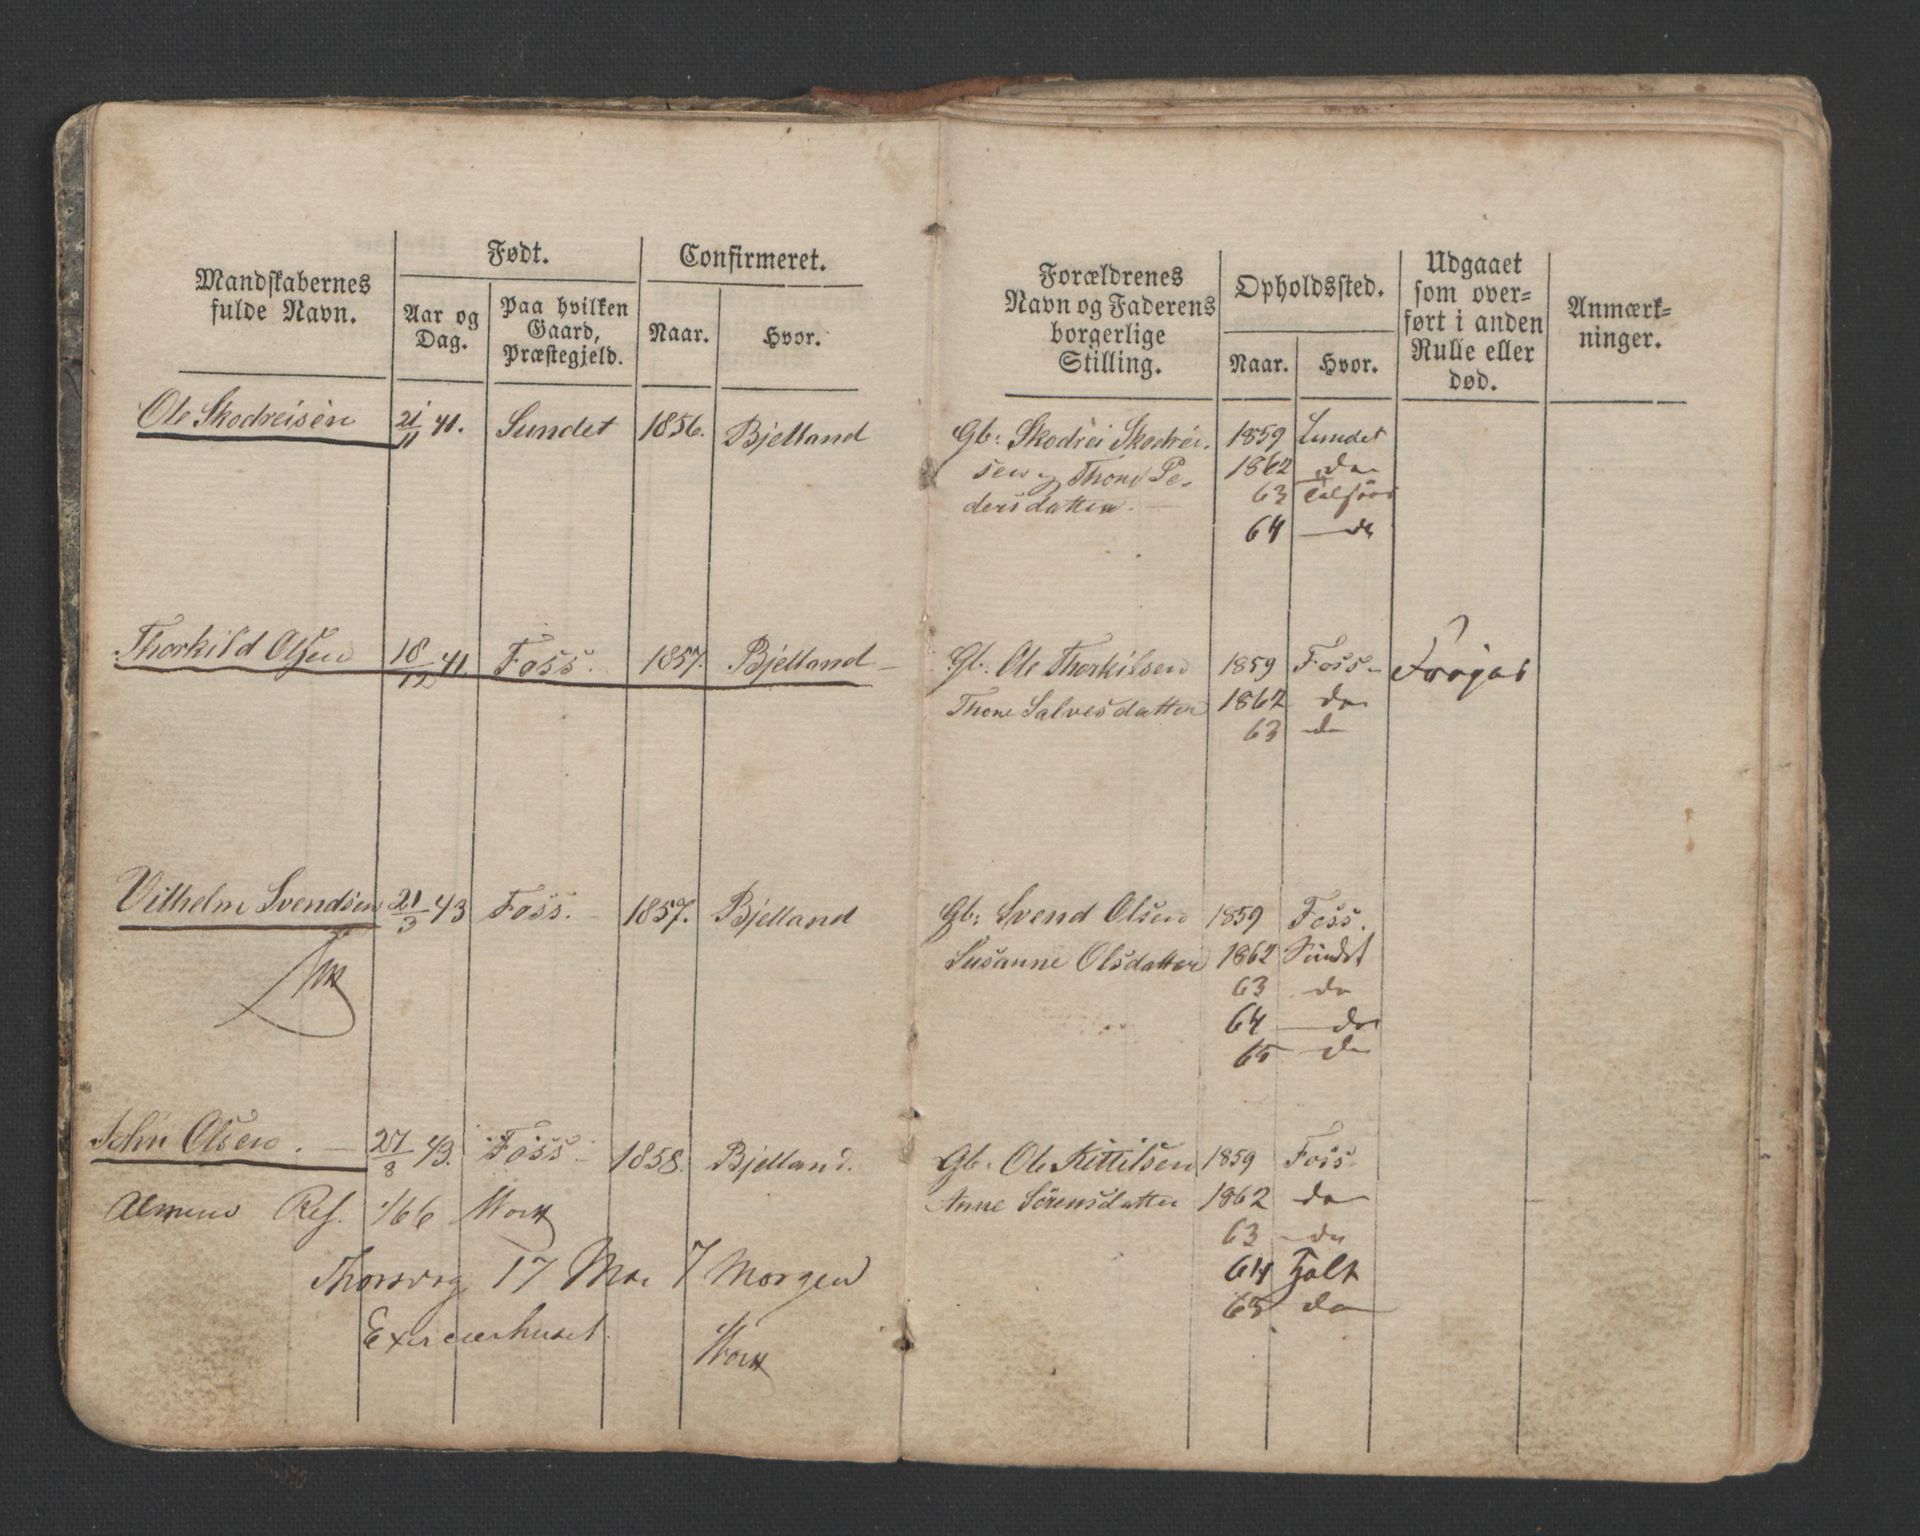 Mandskabernes
fulde Navn.
Født.
Aar og
Dag.
Paa hvilken
Gaard,
Præstegjeld.
Confirmeret.
Naar.
Hvor.
Forældrenes
Navn og Faderens
borgerlige
Stilling.
Opholdssted.
Naar.
Hvor.
Udgaaet
som over-
ført i anden
Rulle eller
død.
Anmærk-
ninger.
Ole Skodreisen 21/11 41. Sundet 1856. Bjelland Gb: Skodrei Skodrei- 1859 Sundet
sen og Thone Pe- 1862 do
dersdatter. 63
64 do
Thorkild Olsen 18/12 41. Foss. 1857. Bjelland Gb: Ole Thorkilsen 1859 Foss
Thone Salvesdatter 1862 do
63 do
Vilhelm Svendsen 21/3 43 Foss. 1857. Bjelland Gb: Svend Olsen 1859 Foss.
Susanne Olsdatter 1862 Sundet
63 do
64 do
65 do
John Olsen. 27/8 43. Foss 1858. Bjelland. Gb. Ole Kittilsen 1859 Foss
Ref. 1/66 Anne Sørensdatter 1862 do
63 do
17 Mai 7 Morgen 64 Holt
Exerceerhuset. 65 do